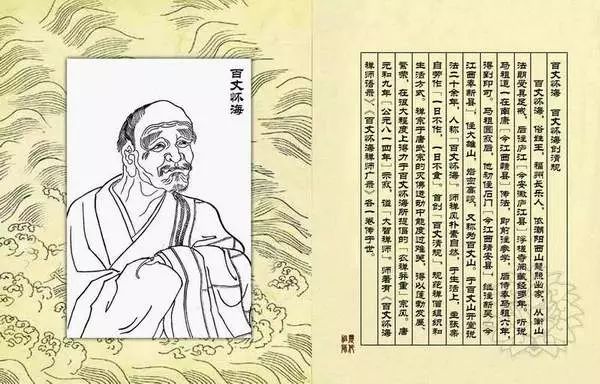 百丈怀海
百丈怀海 百丈怀海创清规
百丈怀海，俗姓王，福州长乐人，依潮阳西山慧照出家，从衡山
法朝受具足戒，后往庐江［今安徽庐江县］浮槎寺阅藏经多年。听说
马祖道一在南康［今江西赣县］传法，即前往参学，后侍奉马祖六年，
得到印可。马祖圆寂后，他初住石门［今江西靖安县］，继往新吴［今
江西奉新县］，住大雄山，岩峦高峻，又称为百丈山。于百丈山开堂说
法二十余年，人称「百丈怀海」。师禅风朴素自然，于生活上，主张亲
自劳作「一日不作，一日不食」。首创「百丈清规」，规范禅僧组织和
生活方式。禅宗于唐武宗的灭佛运动中能度过难关，得以蓬勃发展、
繁荣，在很大程度上得力于百丈怀海所提倡的「农禅并重」宗风。唐
元和九年［公元八一四年］示寂，谥「大智禅师」，师著有《百丈怀海
禅师语录》、《百丈怀海禅师广录》各一卷传于世。